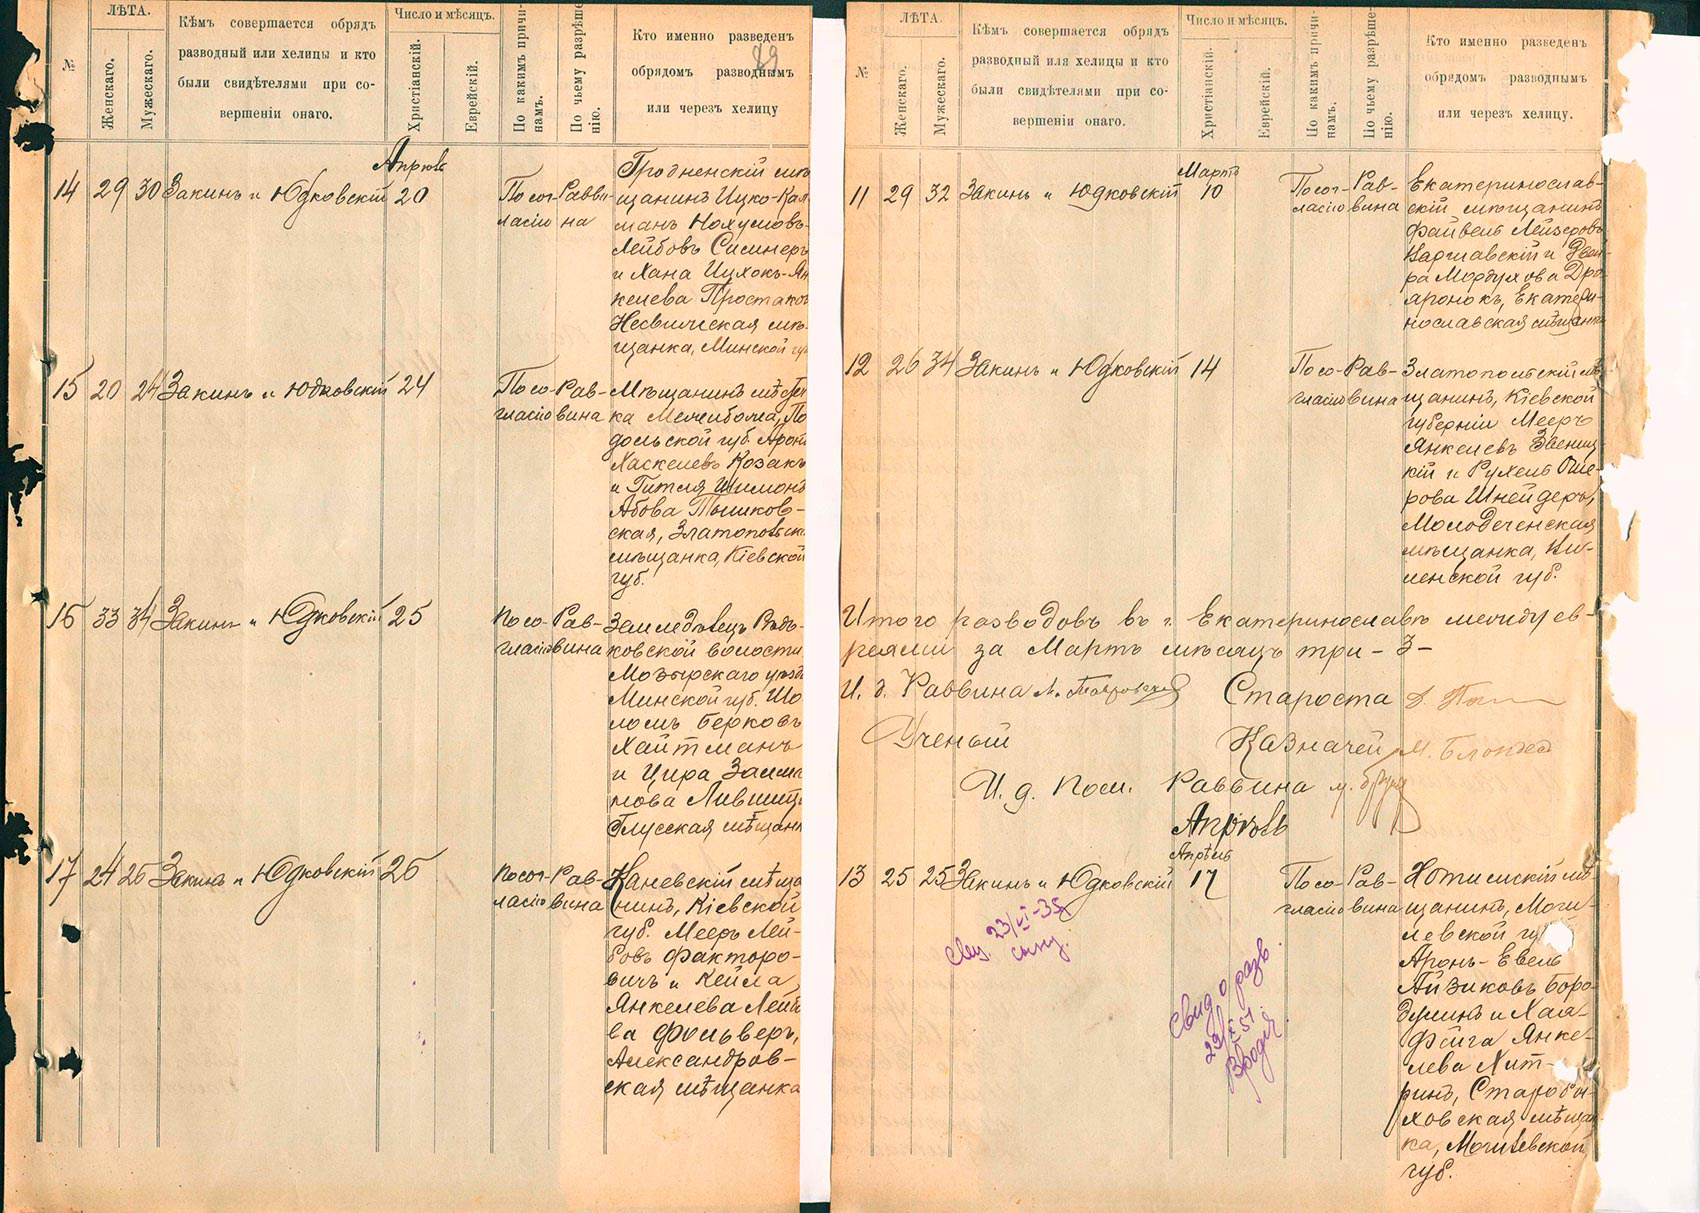 №
ЛѢТА.
Женскаго.
Мужескаго.
Кѣмъ совершается обрядъ
разводный или хелицы и кто
были свидѣтелями при со-
вершеніи онаго.
Число и мѣсяцъ.
Христіанскій.
Еврейскій.
По какимъ причи-
намъ.
По чьему разрѣше-
нію.
Кто именно разведенъ
обрядомъ разводнымъ
или черезъ хелицу
Апрѣль
14 29 30 Закинъ и Юдковскій 20
По сог-
ласію
Равви-
на
Гродненскій мѣ
щанинъ Ицко-Кал
манъ Нохумовъ-
Лейбовъ Сисинеръ
и Хана Ицхокъ-Ян
келева Простакоъ
Несвижская мѣ
щанка, Минской гу
15 20 24 Закинъ и Юдковскій 24
По со-
гласію
Рав-
вина
Мѣщанинъ мѣстеч
ка Межибожа, По
дольской губ. Аронъ
Хаскелевъ Козакъ
и Гитля Шимонъ
Абова Тышков-
ская, Златопольск
мѣщанка, Кіевской
губ.
16 33 34 Закинъ и Юдковскій 25
По со-
гласію
Рав-
вина
Земледѣлецъ
ковской волости
Мозырскаго уѣзда
Минской губ. Шо
ломъ Берковъ
Хайтманъ
и Цира Залма
нова Лившицъ
Глусская мѣщанк
17 24 26 Закинъ и Юдковскій 26
По сог-
ласію
Рав-
вина
Каневскій мѣща
нинъ, Кіевской
губ. Мееръ Лей-
бовъ Факторо-
вичъ и Кейла
Янкелева Лейб
ва Фольверъ,
Александров-
ская мѣщанка
№
ЛѢТА.
Женскаго.
Мужескаго.
Кѣмъ совершается обрядъ
разводный или хелицы и кто
были свидѣтелями при со-
вершеніи онаго.
Число и мѣсяцъ.
Христіанскій.
Еврейскій.
По какимъ причи-
намъ.
По чьему разрѣше-
нію.
Кто именно разведенъ
обрядомъ разводнымъ
или черезъ хелицу.
Мартъ
11 29 32 Закинъ и Юдковскій 10
По сог-
ласію
Рав-
вина
Екатеринослав-
скій мѣщанинъ
Файвель Лейзеровъ
Варшавскій и Двей
ра Мордухова Дра
аронокъ, Екатери-
нославская мѣщанка
12 26 34 Закинъ и Юдковскій 14
По со-
гласію
Рав-
вина
Златопольскій мѣ
щанинъ, Кіевской
губерніи Мееръ
Янкелевъ Звениц
кій и Рухель Оше-
рова Шнейдеръ,
Молодеченская
мѣщанка, Ви-
ленской губ.
Итого разводовъ въ г. Екатеринославѣ между ев-
реями за Мартъ мѣсяцъ три - 3 -
И. д. Раввина Староста
Ученый Казначей
И. д. Пом. Раввина
Апрѣль
Апрѣль
13 25 25 Закинъ и Юдковскій 17
По со-
гласію
Рав-
вина
Хотимскій мѣ-
щанинъ, Моги-
левской гу
Аронъ-Евель
Айзиковъ Боро-
дулинъ и Хая-
Фейга Янке-
лева Хит-
ринъ, Старобы-
ховская мѣщан-
ка, Могилевской
губ.
23/VI-35
Свид о разв.
29/X 51